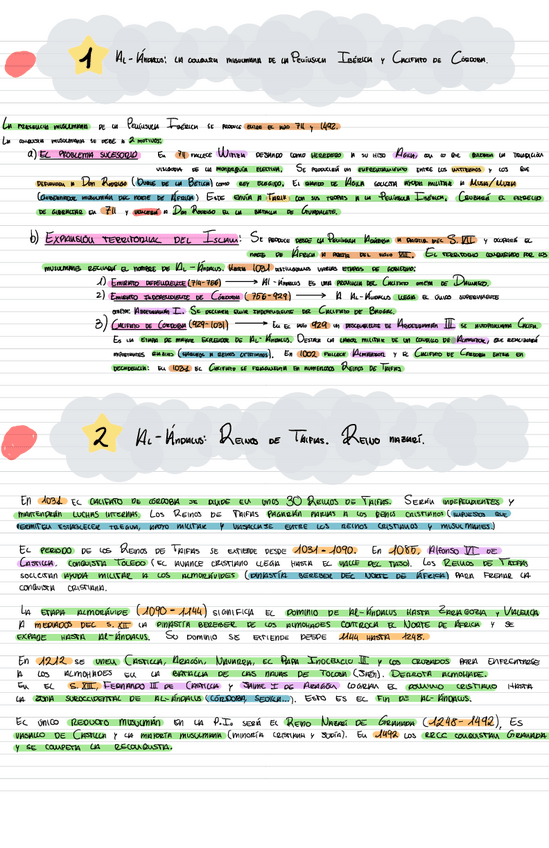 1
Al-Ándalus: la conquista musulmana de la Península Ibérica y Califato de Córdoba.
La presencia musulmana de la Península Ibérica se produce entre el año 711 y 1492.
La conquista musulmana se debe a 2 motivos:
a) El problema sucesorio En 711 fallece Witiza dejando como heredero a su hijo Agila, con lo que la tradición
visigoda de la monarquía electiva. Se producirá un enfrentamiento entre los witizanos y los que
defendían a Don Rodrigo (Duque de la Bética) como rey elegido. El bando de Agila solicita ayuda militar a Musa/Muza
(gobernador musulmán del norte de África). Este envía a Tariq con sus tropas a la Península Ibérica. Cruzará el estrecho
de Gibraltar en 711 y a Don Rodrigo en la batalla de Guadalete.
b) Expansión territorial del Islam: Se produce desde la Península Arábiga a partir del S. VII y ocupará el
norte de África a partir del siglo VII. El territorio conquistado por los
musulmanes recibirá el nombre de Al-Ándalus. Hasta 1031 distinguimos varias etapas de gobierno:
1) Emirato dependiente (714-756) → Al-Ándalus es una provincia del Califato omeya de Damasco.
2) Emirato Independiente de Córdoba (756-929) → A Al-Ándalus llega el único superviviente
omeya Abderramán I. Se declara emir independiente del Califato de Bagdad.
3) Califato de Córdoba (929-1031) → En el año 929 un descendiente de Abderramán III se autoproclama Califa.
Es la etapa de mayor esplendor de Al-Ándalus. Destaca la labor militar de un caudillo de Almanzor, que realizará
importantes razzias (saqueos a reinos cristianos). En 1002 fallece Almanzor y el Califato de Córdoba entra en
decadencia: en 1031 el Califato se fragmenta en numerosos Reinos de Taifas.
2
Al-Ándalus: Reinos de Taifas. Reino nazarí.
En 1031 el califato de Córdoba se divide en unos 30 Reinos de Taifas. Serán independientes y
mantendrán luchas internas. Los Reinos de Taifas pagarán parias a los reinos cristianos (impuestos que
permitían establecer tregua, apoyo militar y vasallaje entre los reinos cristianos y musulmanes.)
El periodo de los Reinos de Taifas se extiende desde 1031-1090. En 1085, Alfonso VI de
Castilla, conquista Toledo (el avance cristiano llega hasta el valle del Tajo). Los Reinos de Taifas
solicitan ayuda militar a los almorávides (dinastía bereber del norte de África) para frenar la
conquista cristiana.
La etapa almorávide (1090-1144) significa el dominio de Al-Ándalus hasta Zaragoza y Valencia
A mediados del S. XII la dinastía bereber de los almohades controla el norte de África y se
expande hasta Al-Ándalus. Su dominio se extiende desde 1144 hasta 1248.
En 1212 se unen Castilla, Aragón, Navarra, el Papa Inocencio III y los cruzados para enfrentarse
a los almohades en la batalla de las Navas de Tolosa (Jaén). Derrota almohade.
En el S. XIII, Fernando III de Castilla y Jaime I de Aragón logran el dominio cristiano hasta
la zona suroccidental de Al-Ándalus (Córdoba, Sevilla...). Esto es el fin de Al-Ándalus.
El único reducto musulmán en la P.I. será el Reino Nazarí de Granada (1248-1492), es
vasallo de Castilla y la mayoría musulmana (minoría cristiana y judía). En 1492 los RRCC conquistan Granada
y se completa la reconquista.